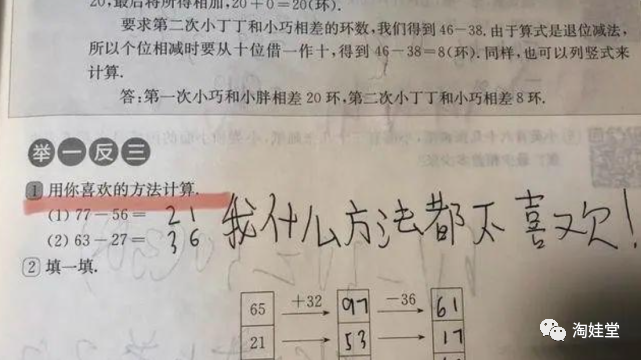 20,最后将所得相加,20+0=20(环).
要求第二次小丁丁和小巧相差的环数,我们得到46-38.由于算式是退位减法,
所以个位相减时要从十位借一作十,得到46-38=8(环).同样,也可以列竖式来
计算.
答:第一次小巧和小胖相差20环,第二次小丁丁和小巧相差8环.
举一反三
1 用你喜欢的方法计算.
(1) 77-56= 21
(2) 63-27= 36
我什么方法都不喜欢!
2 填一填.
65 +32 97 -36 61
21 53 17
淘娃堂